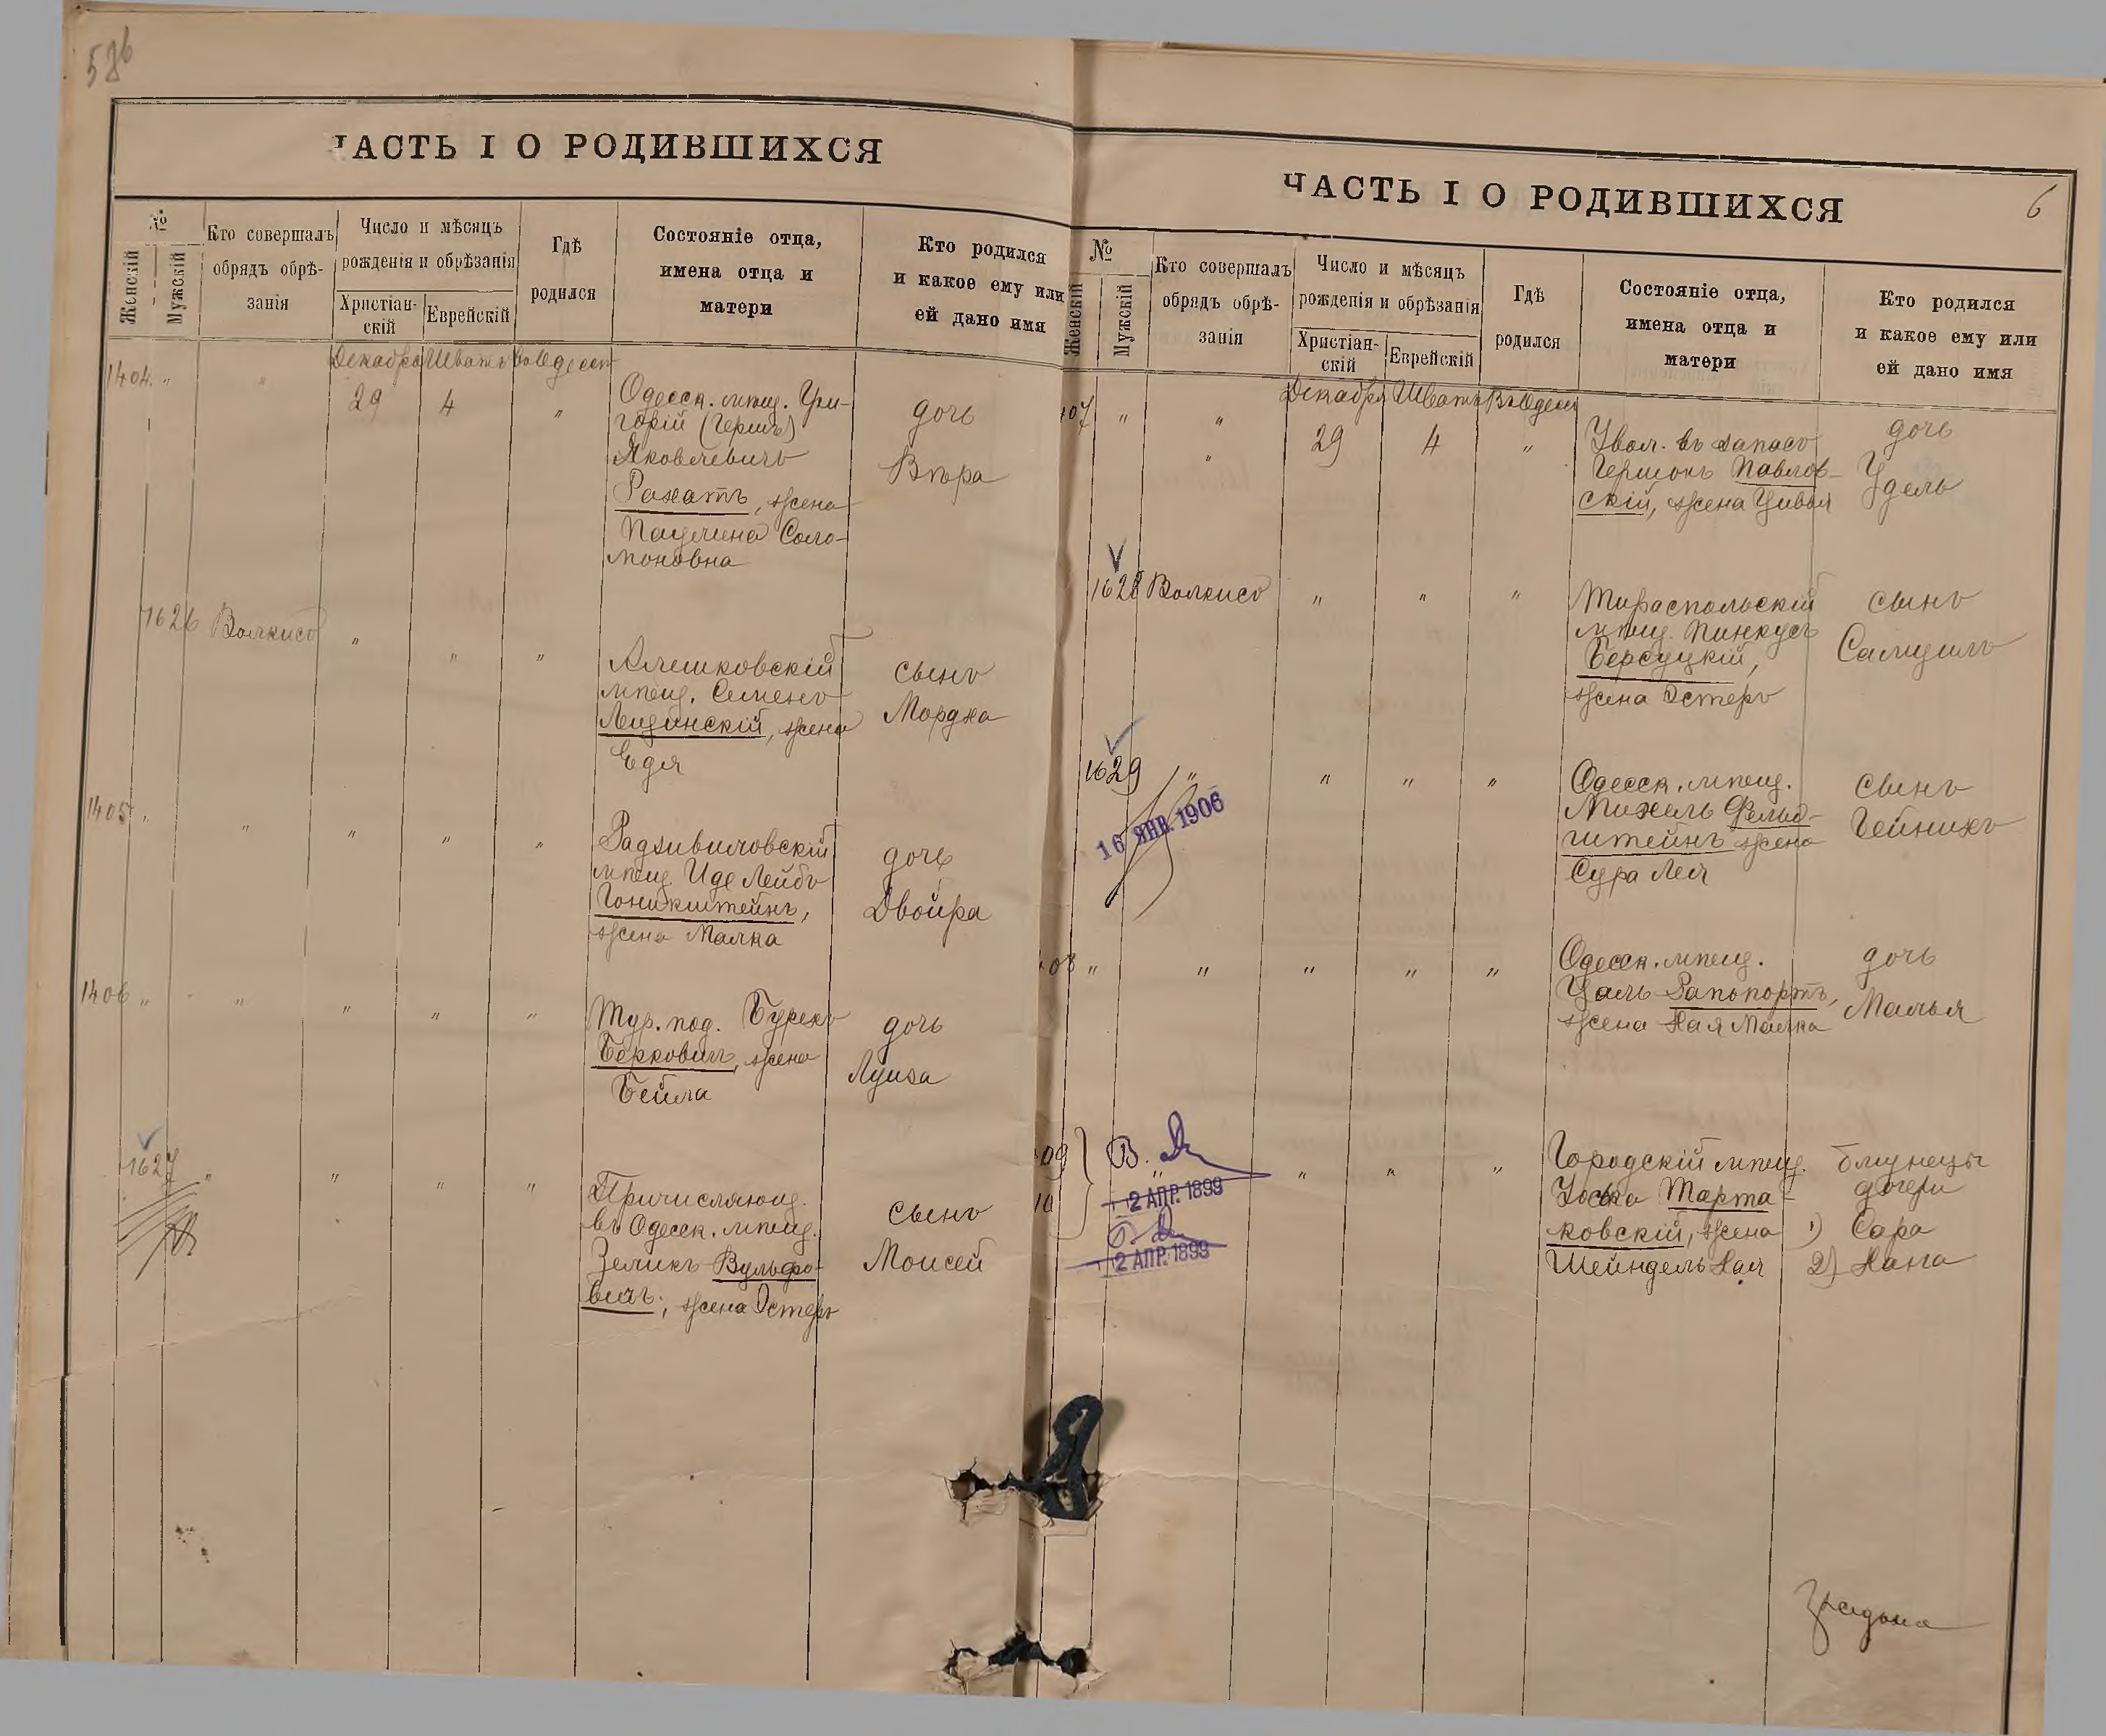 586
ЧАСТЬ I О РОДИВШИХСЯ
№
Женскій
Мужскій
Кто совершалъ
обрядъ обрѣ-
занія
Число и мѣсяцъ
рожденія и обрѣзанія
Христіан-
скій
Еврейскій
Гдѣ
родился
Состояніе отца,
имена отца и
матери
Кто родился
и какое ему или
ей дано имя
Декабря Шватъ въ Одессѣ
1404 " " 29 4 "
Одесск. мѣщ. Гри-
горій (Гершъ)
Яковлевичъ
Рахатъ, жена
Паулина Соло-
моновна
дочь
Вѣра
1626 Волкисъ " " "
Алешковскій
мѣщ. Семенъ
Лединскій, жена
Едя
сынъ
Мордха
1405 " " " " "
Радзивиловскій
мѣщ. Иде Лейбъ
Гоникштейнъ,
жена Малка
дочь
Двойра
1406 " " " " "
Тур. под. Бурехъ
Берковичъ, жена
Бейла
дочь
Луиза
1627 " " " "
Причисляющ.
въ Одесск. мѣщ.
Зеликъ Вульфо-
вичъ, жена Эстеръ
сынъ
Моисей
ЧАСТЬ I О РОДИВШИХСЯ
6
№
Женскій
Мужскій
Кто совершалъ
обрядъ обрѣ-
занія
Число и мѣсяцъ
рожденія и обрѣзанія
Христіан-
скій
Еврейскій
Гдѣ
родился
Состояніе отца,
имена отца и
матери
Кто родился
и какое ему или
ей дано имя
Декабря Шватъ Въ Одессѣ
07 " " 29 4 "
Увол. въ запасъ
Гершонъ Павлов-
скій, жена Цивья
дочь
Удель
1628 Волкисъ " " "
Тираспольскій
мѣщ. Пинкусъ
Берсуцкій,
жена Эстеръ
сынъ
Самуилъ
1629 " " " "
16 ЯНВ. 1906
Одесск. мѣщ.
Михель Фельд-
штейнъ жена
Сура Лея
сынъ
Гейнихъ
08 " " " " "
Одесск. мѣщ.
Уаль Рапопортъ,
жена Хая Малка
дочь
Малья
09
10
2 АПР. 1899
2 АПР. 1899
" " "
Городскій мѣщ.
Іосько Марта-
ковскій, жена
Шейндель Хая
близнецы
дочери
1) Сара
2) Хана